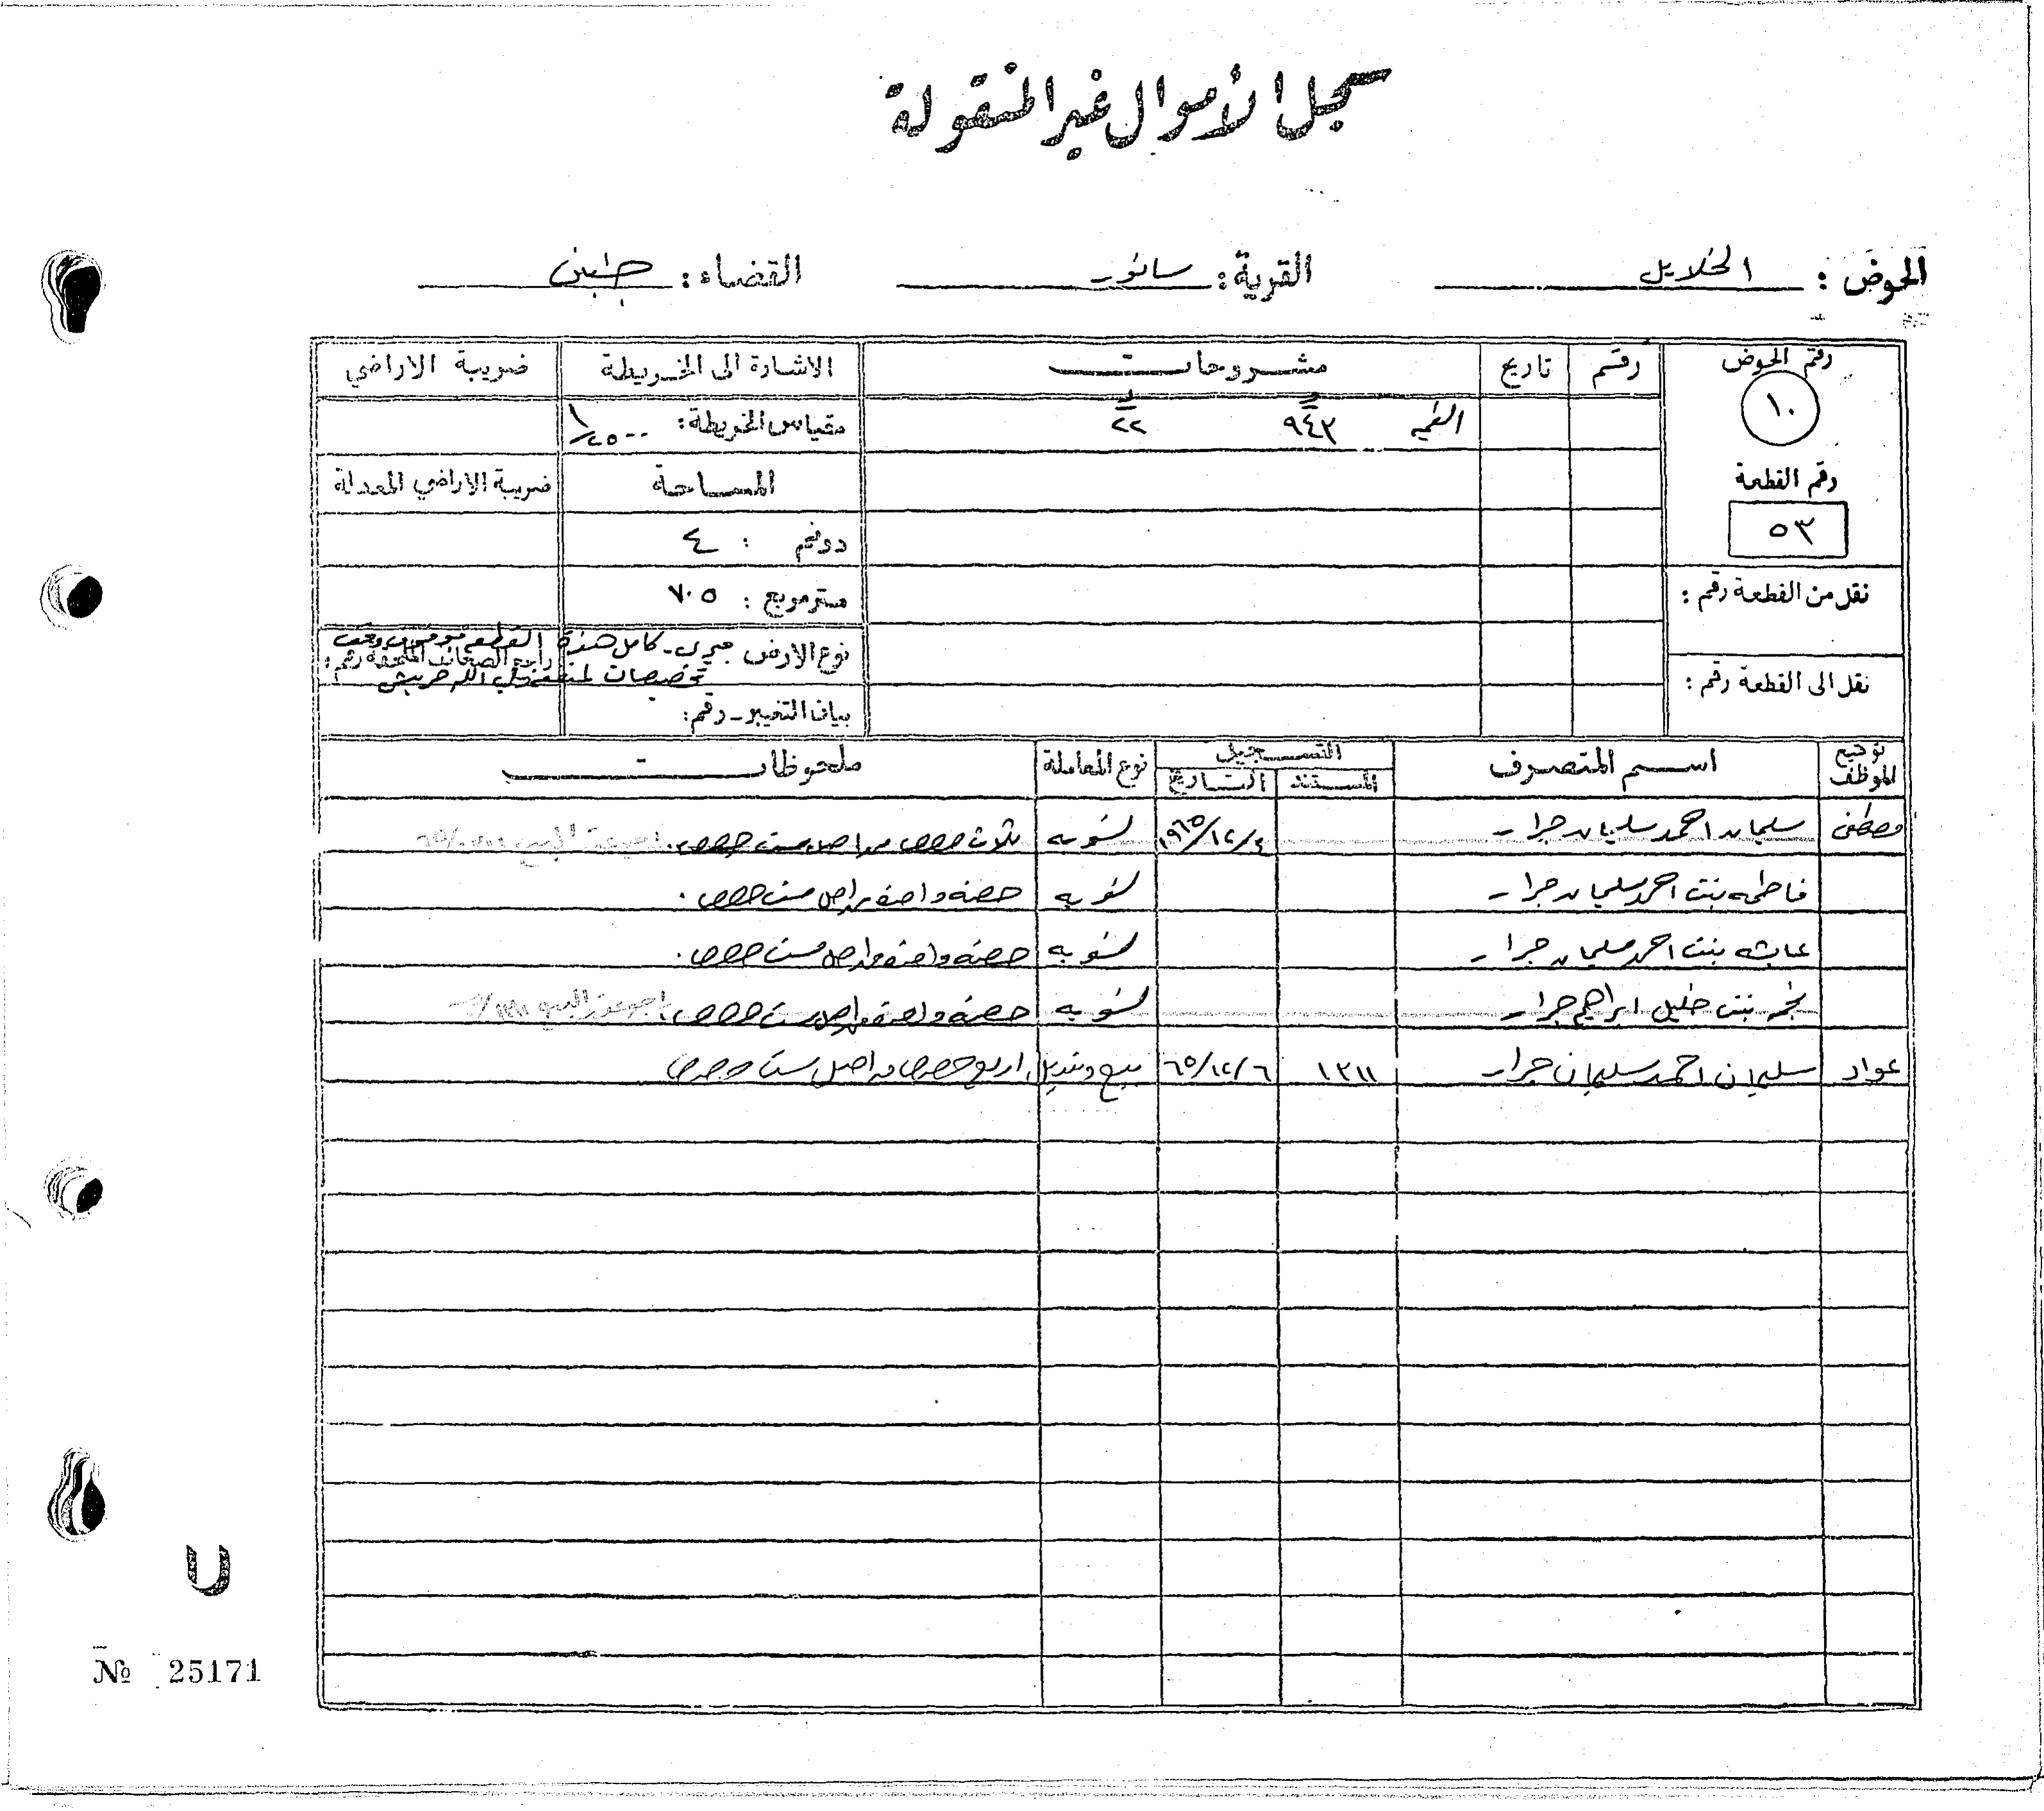 سجل الأموال غير المنقولة
الحوض : الخلايل القرية : سانور القضاء : جنين
رقم الحوض رقم تاريخ مشروحات الاشارة الى الخريطة ضريبة الاراضي
١٠ ٩٤٣ ٢٢ مقياس الخريطة : ١/٢٥٠٠
رقم القطعة المساحة ضريبة الاراضي المعدلة
٥٣ دونم : ٤
نقل من القطعة رقم : متر مربع : ٧٠٥
نوع الارض ميري - كامل هذه القطعة وقف
راجع الصحائف الملحقة رقم :
تخصيصات
نقل الى القطعة رقم :
بيان التغيير - رقم :
توقيع الموظف اسم المتصرف التسجيل نوع المعاملة ملحوظات
المستند التاريخ
مصطفى سليمان احمد سليمان جرار ١٩٦٥/١٢/٤ تسويه ثلاث حصص من اصل ست حصص .
فاطمه بنت احمد سليمان جرار تسويه حصه واحده من اصل ست حصص .
عايشه بنت احمد سليمان جرار تسويه حصه واحده من اصل ست حصص .
نجمه بنت خليل ابراهيم جرار تسويه حصه واحده من اصل ست حصص .
عواد سليمان احمد سليمان جرار ١٣١١ ٦٥/١٢/٦ بيع وتبديل اربع حصص من اصل ست حصص
№ 25171